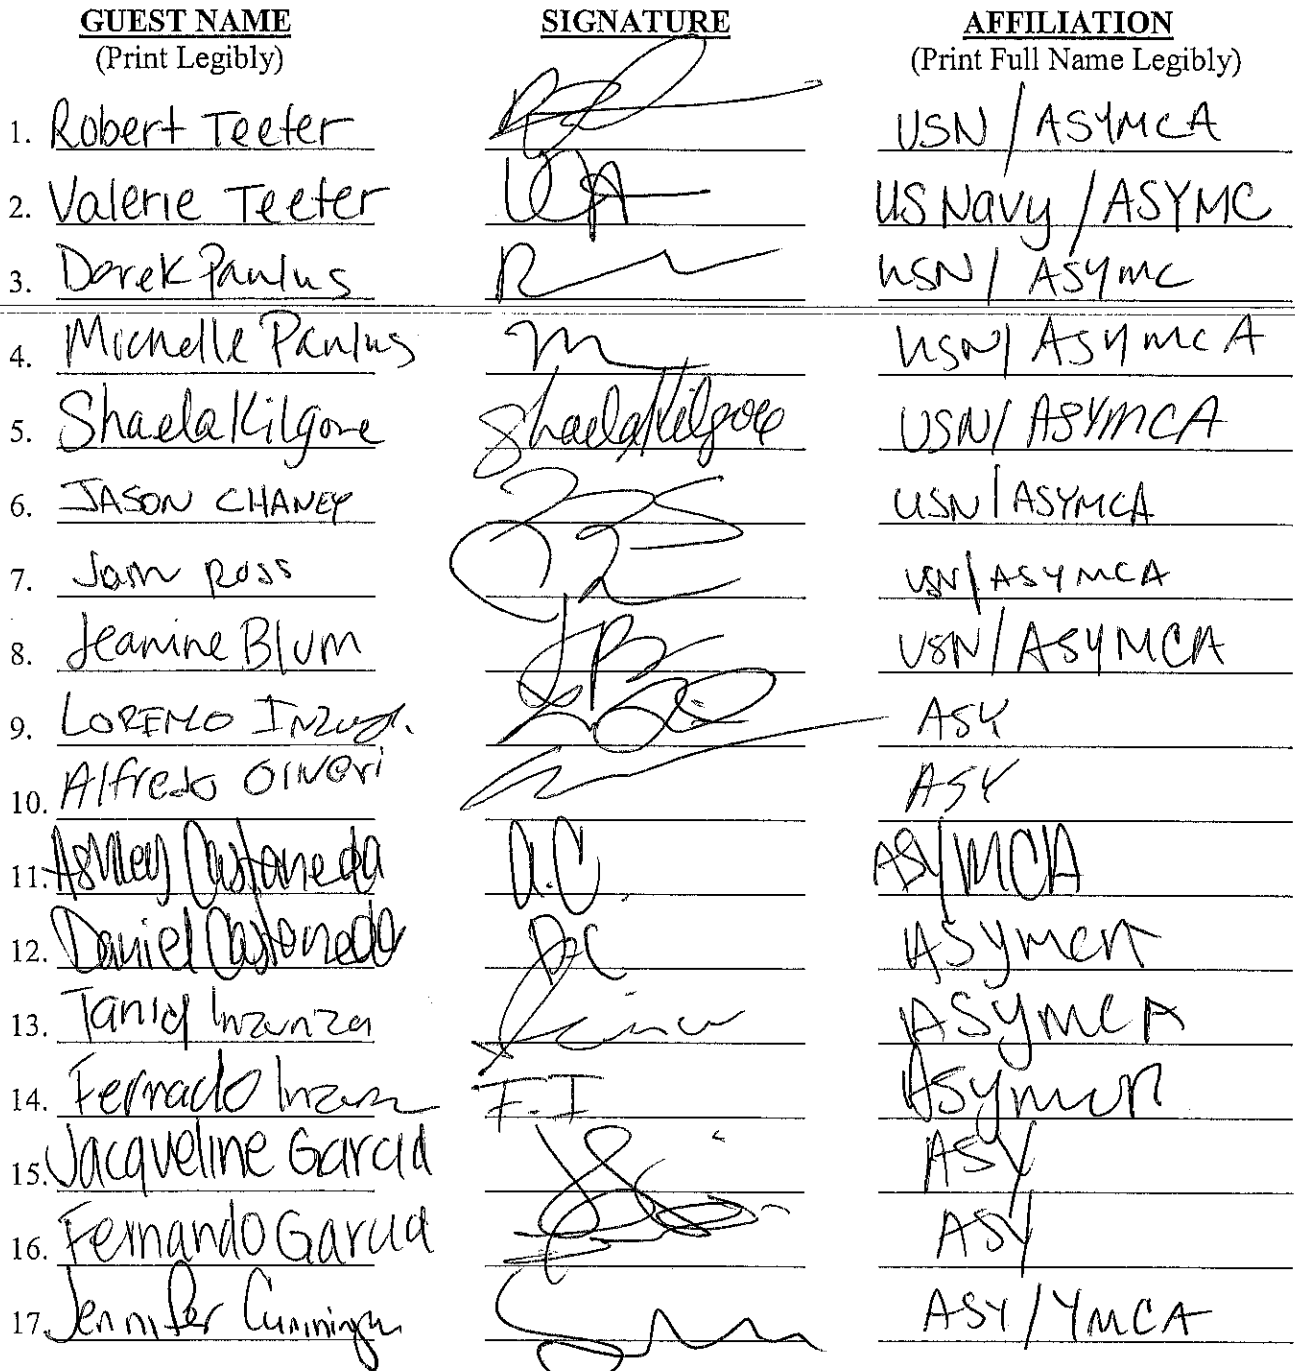 GUEST NAME SIGNATURE AFFILIATION
(Print Legibly) (Print Full Name Legibly)
1. Robert Teeter USN / ASYMCA
2. Valerie Teeter US Navy / ASYMC
3. Derek Paulus USN / ASYMC
4. Michelle Paulus USN / ASYMCA
5. Shaela Kilgore Shaela Kilgore USN / ASYMCA
6. JASON CHANEY USN / ASYMCA
7. Ross USN / ASYMCA
8. Jeanine Blum JB USN / ASYMCA
9. LORENZO ASY
10. Alfredo Oliveri ASY
11. Ashley Castaneda A.C. ASY/MCA
12. Daniel Castaneda DC ASYMCA
13. Tania Inzunza ASYMCA
14. Fernado F.I ASYMCA
15. Jacqueline Garcia ASY
16. Fernando Garcia ASY
17. Jennifer ASY / YMCA